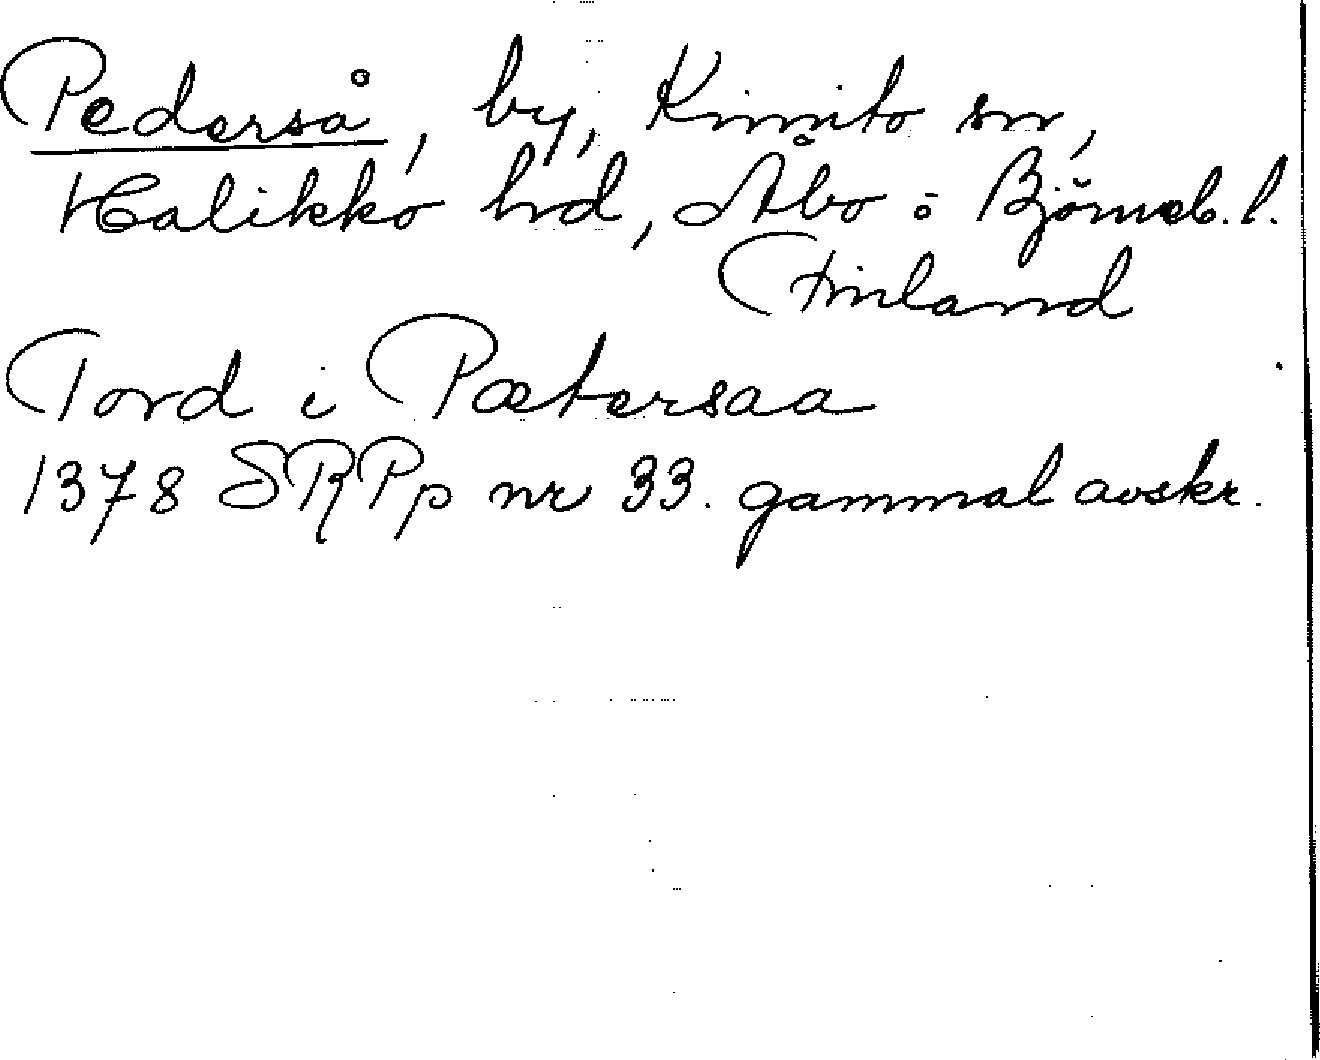 Pederså, by, Kimito sn,
Halikko hd, Åbo o: Björneb. l.
Finland
Tord i Pætersaa
1378 SRPp nr 33. gammal avskr.